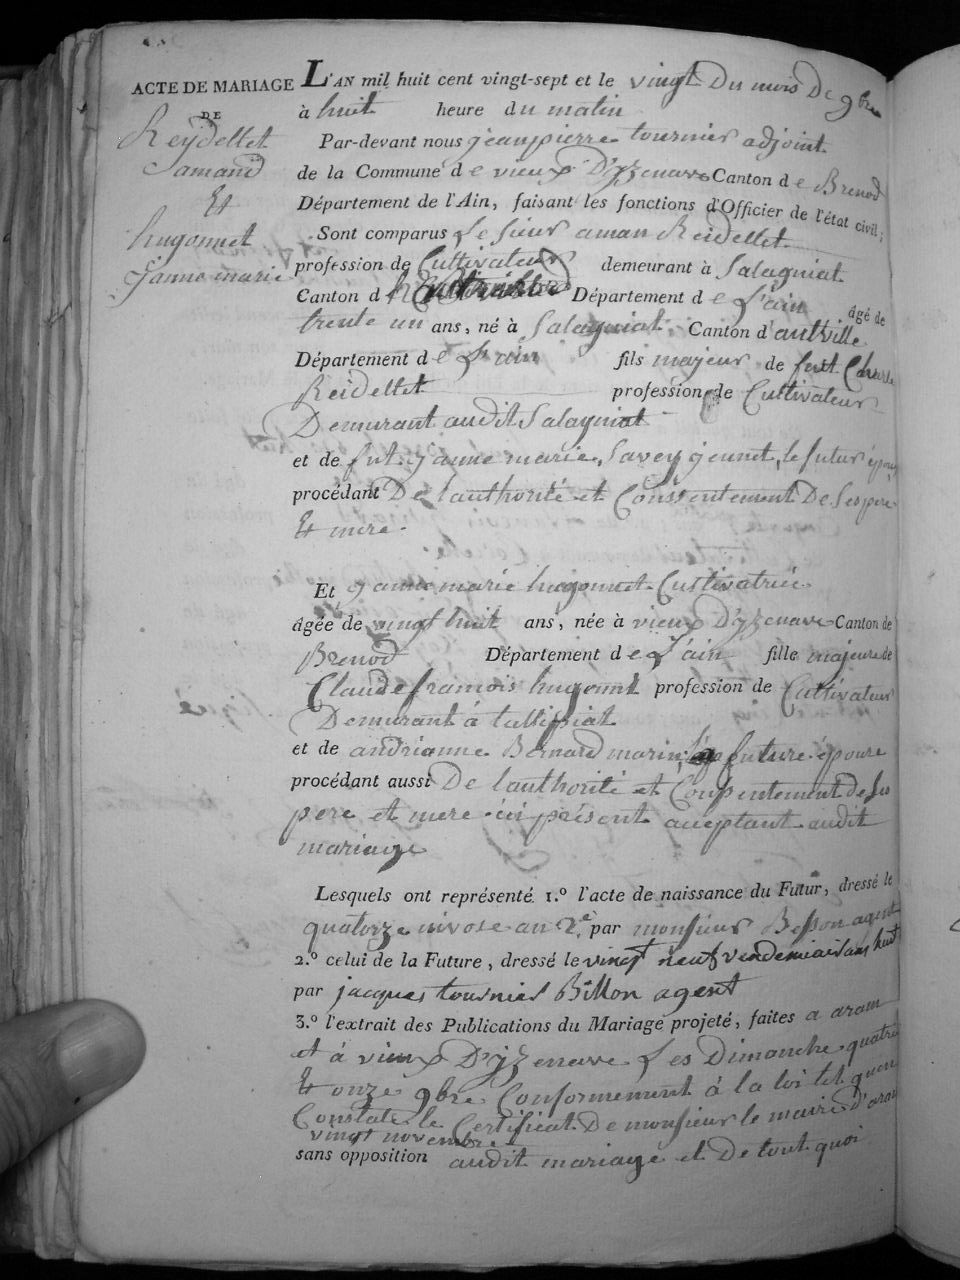 ACTE DE MARIAGE
DE
Reydellet
Et
hugonnet
janne marie
L'AN mil huit cent vingt-sept et le vingt Du mois De 9bre
à huit heure du matin
Par-devant nous jeanpierre tournier adjoint
de la Commune de vieux D'yzenave Canton de Brenod
Département de l'Ain, faisant les fonctions d'Officier de l'état civil;
Sont comparus Le sieur aman Reidellet
profession de Cultivateur demeurant à Salagniat
Canton d Département de L'ain âgé de
trente un ans, né à Salagniat Canton d'autville
Département de L'ain fils majeur de fut Charle
Reidellet profession de Cultivateur
Demurant audit Salagniat
et de fut janne marie Savey jeunet, le futur épou
procédant De lauthorité et Consentement De Ses pere
Et mere
Et janne marie hugonnet Cultivatrice
âgée de vingt huit ans, née à vieux D'yzenave Canton de
Brenod Département de L'ain fille majeure de
Claude framois hugonnt profession de Cultivateur
Demurant à
et de andrianne Bernard marin, future épouse
procédant aussi De lauthorité et Consentement de Ses
pere et mere ici présent acceptant audit
mariage
Lesquels ont représenté 1.º l'acte de naissance du Futur, dressé le
quatorze nivose an 2e par monsieur Besson agent
2.º celui de la Future, dressé le vingt neuf vendemiair an huit
par jacques tournier Billon agent
3.º l'extrait des Publications du Mariage projeté, faites a aran
et à vieux D'yzenave Les Dimanche quatre
Et onze 9bre Conformement à la loi tel quen
Constate le Certificat De monsieur le maire D'aran
vingt novembre
sans opposition audit mariage et De tout quoi